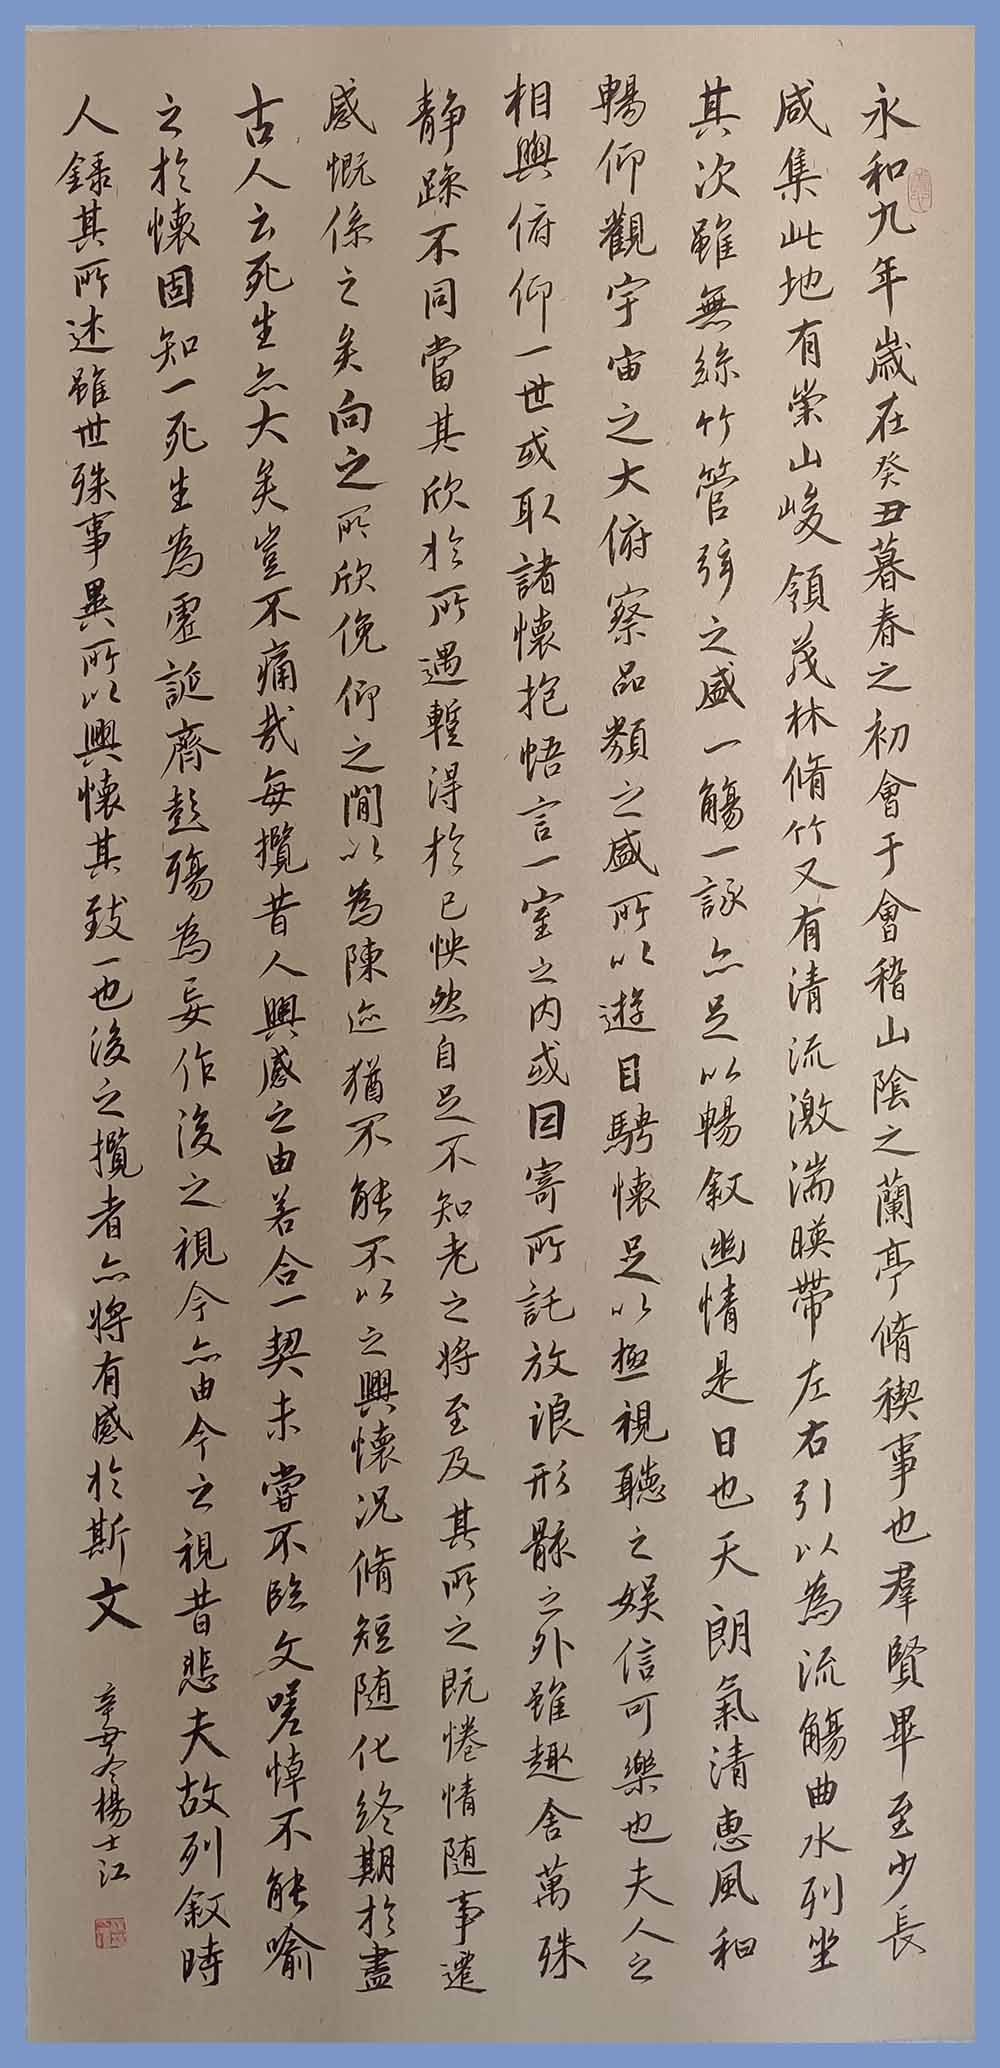 永和九年歲在癸丑暮春之初會于會稽山陰之蘭亭脩稧事也羣賢畢至少長
咸集此地有崇山峻領茂林脩竹又有清流激湍暎帶左右引以為流觴曲水列坐
其次雖無絲竹管弦之盛一觴一詠亦足以暢敘幽情是日也天朗氣清惠風和
暢仰觀宇宙之大俯察品類之盛所以遊目騁懷足以極視聽之娛信可樂也夫人之
相與俯仰一世或取諸懷抱悟言一室之內或曰寄所託放浪形骸之外雖趣舍萬殊
静躁不同當其欣於所遇暫得於己怏然自足不知老之將至及其所之既惓情随事遷
感慨係之矣向之所欣俛仰之閒以為陳迹猶不能不以之興懷況脩短随化終期於盡
古人云死生亦大矣豈不痛哉每攬昔人興感之由若合一契未嘗不臨文嗟悼不能喻
之於懷固知一死生為虛誕齊彭殤為妄作後之視今亦由今之視昔悲夫故列敘時
人錄其所述雖世殊事異所以興懷其致一也後之攬者亦將有感於斯文
辛丑冬楊士江